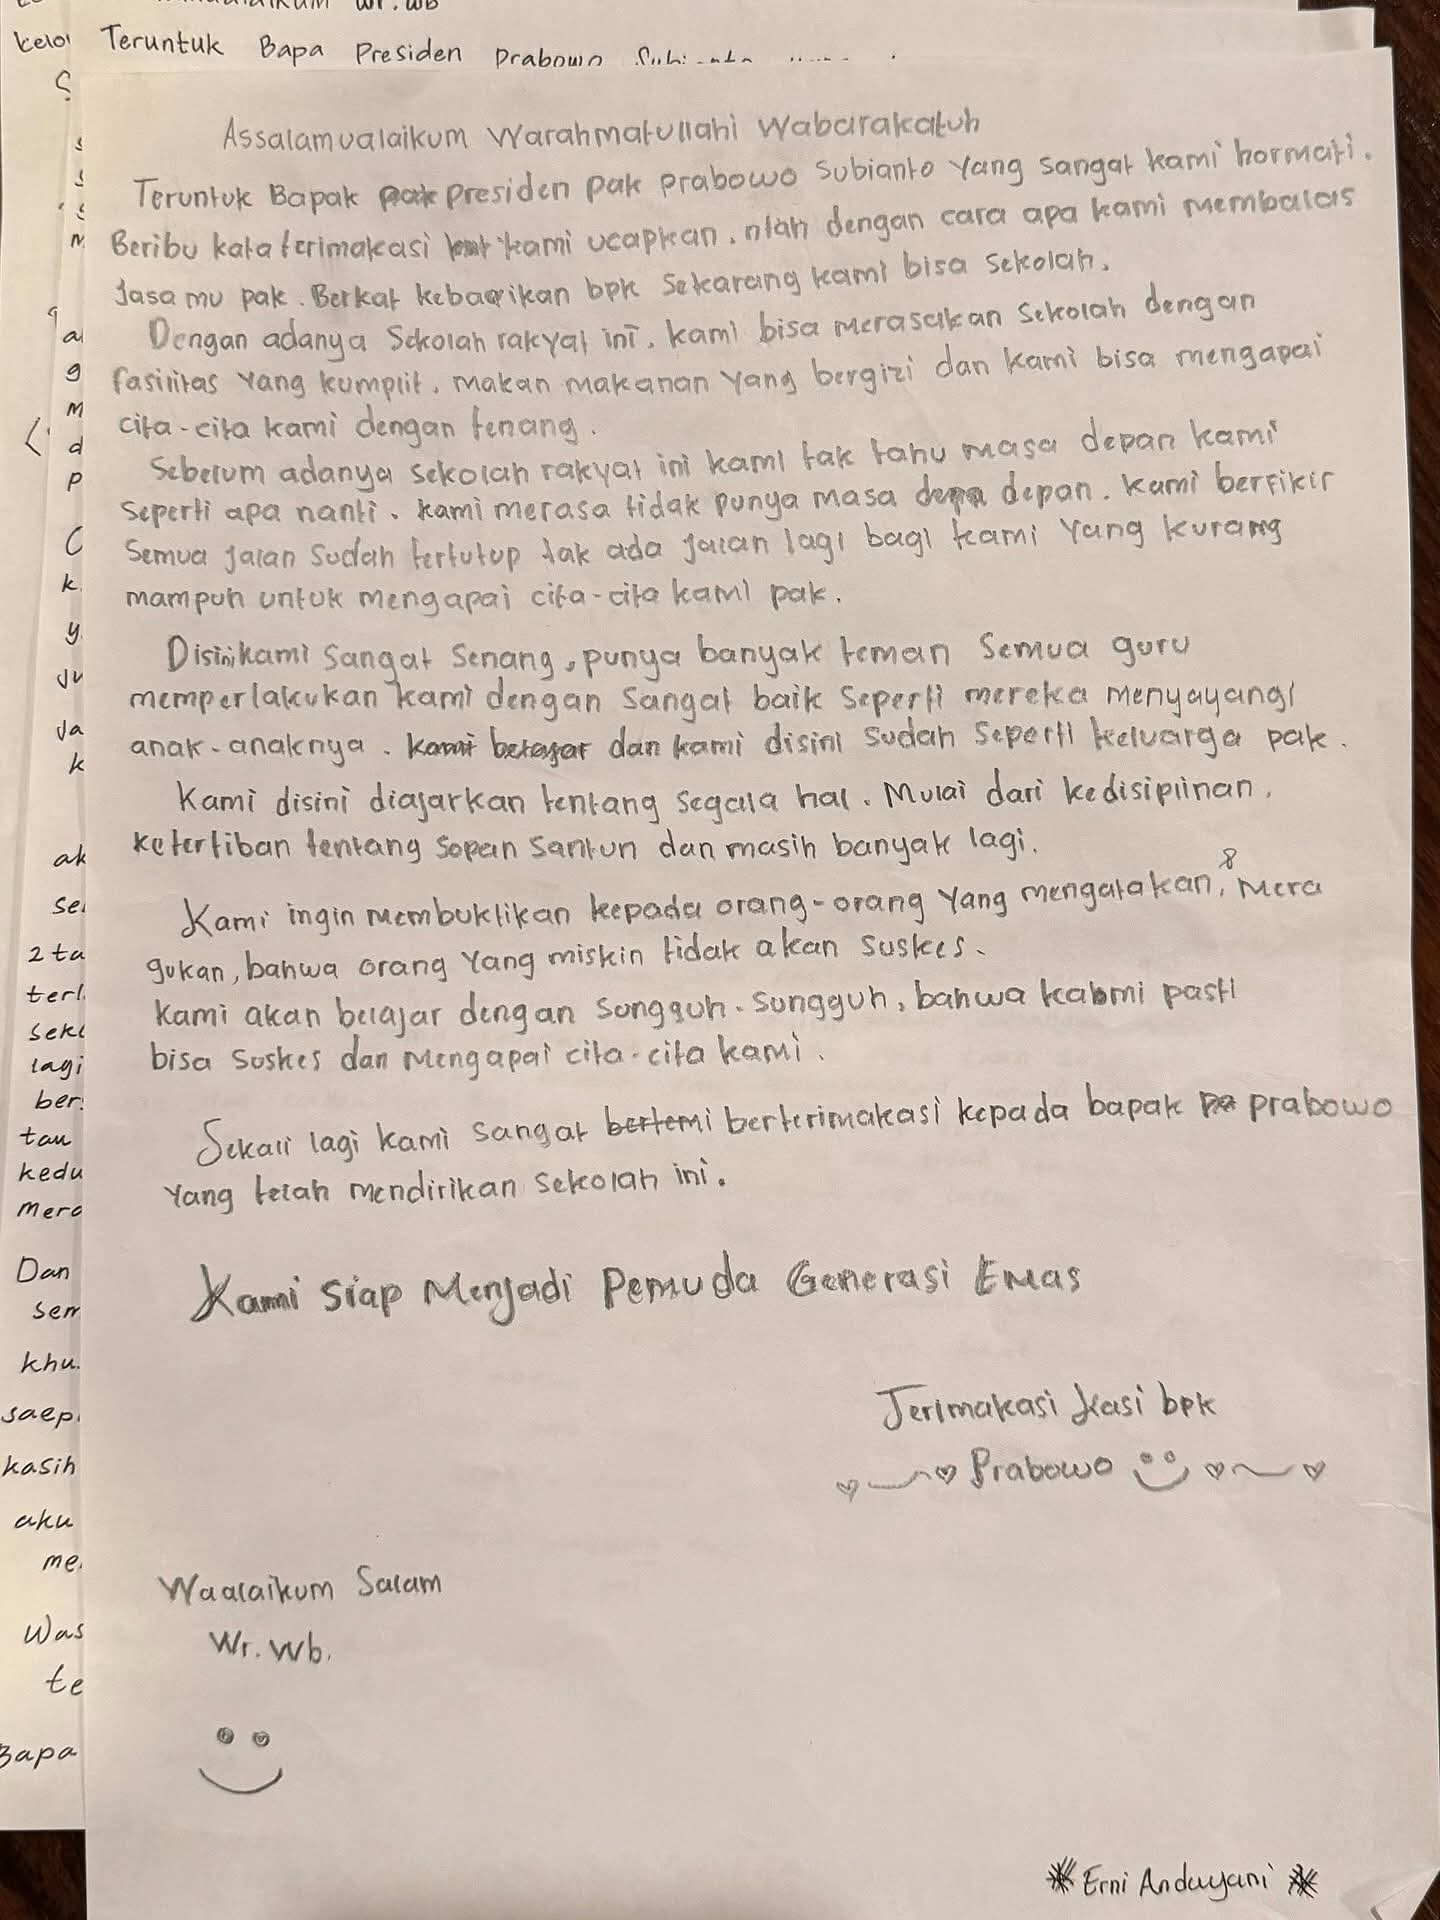 Teruntuk Bapa Presiden Prabowo
Assalamualaikum Warahmatullahi Wabarakatuh
Teruntuk Bapak presiden pak prabowo subianto yang sangat kami hormati.
Beribu kata terimakasi kami ucapkan. ntah dengan cara apa kami membalas
Jasa mu pak. Berkat kebaikan bpk sekarang kami bisa sekolah.
Dengan adanya Sekolah rakyat ini. kami bisa merasakan sekolah dengan
fasilitas yang kumplit. makan makanan yang bergizi dan kami bisa mengapai
cita-cita kami dengan tenang.
Sebelum adanya sekolah rakyat ini kami tak tahu masa depan kami
seperti apa nanti. kami merasa tidak punya masa depan. kami berfikir
semua jalan sudah tertutup tak ada jalan lagi bagi kami yang kurang
mampuh untuk mengapai cita-cita kami pak.
Disini kami sangat senang, punya banyak teman semua guru
memperlakukan kami dengan sangat baik seperti mereka menyayangi
anak-anaknya. kami belajar dan kami disini sudah seperti keluarga pak.
Kami disini diajarkan tentang segala hal. Mulai dari kedisiplinan.
ketertiban tentang sopan santun dan masih banyak lagi.
Kami ingin membuktikan kepada orang-orang yang mengatakan, mera
gukan, bahwa orang yang miskin tidak akan suskes.
kami akan belajar dengan sungguh-sungguh, bahwa kami pasti
bisa suskes dan mengapai cita-cita kami.
Sekali lagi kami sangat bertemi berterimakasi kepada bapak prabowo
yang telah mendirikan sekolah ini.
Kami Siap Menjadi Pemuda Generasi Emas
Terimakasi kasi bpk
Prabowo
Waalaikum Salam
Wr. Wb.
Erni Andayani